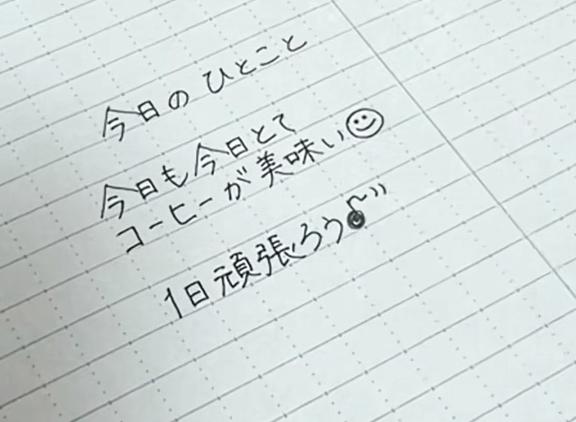 今日の ひとこと
今日も今日とて
コーヒーが美味い☺
1日頑張ろう♪